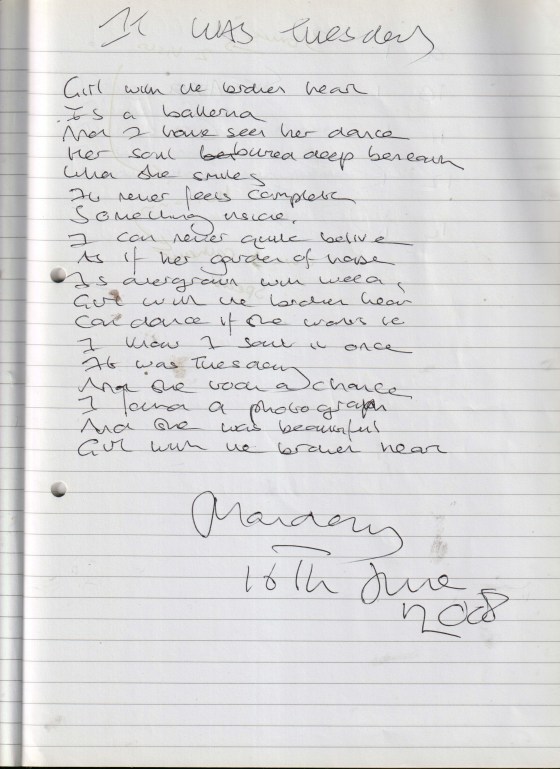 It WAS Tuesday
Girl with the broken heart
Is a ballerina
And I have seen her dance
Her soul buried deep beneath
When she smiles
It never feels complete
Something inside.
I can never quite belive
As if her garden of hope
Is overgrown with weeds
Girl with the broken heart
Can dance if she wants to
I know I saw it once
It was Tuesday
And she took a chance
I found a photograph
And she was beautiful
Girl with the broken heart
Monday
16th June
2008